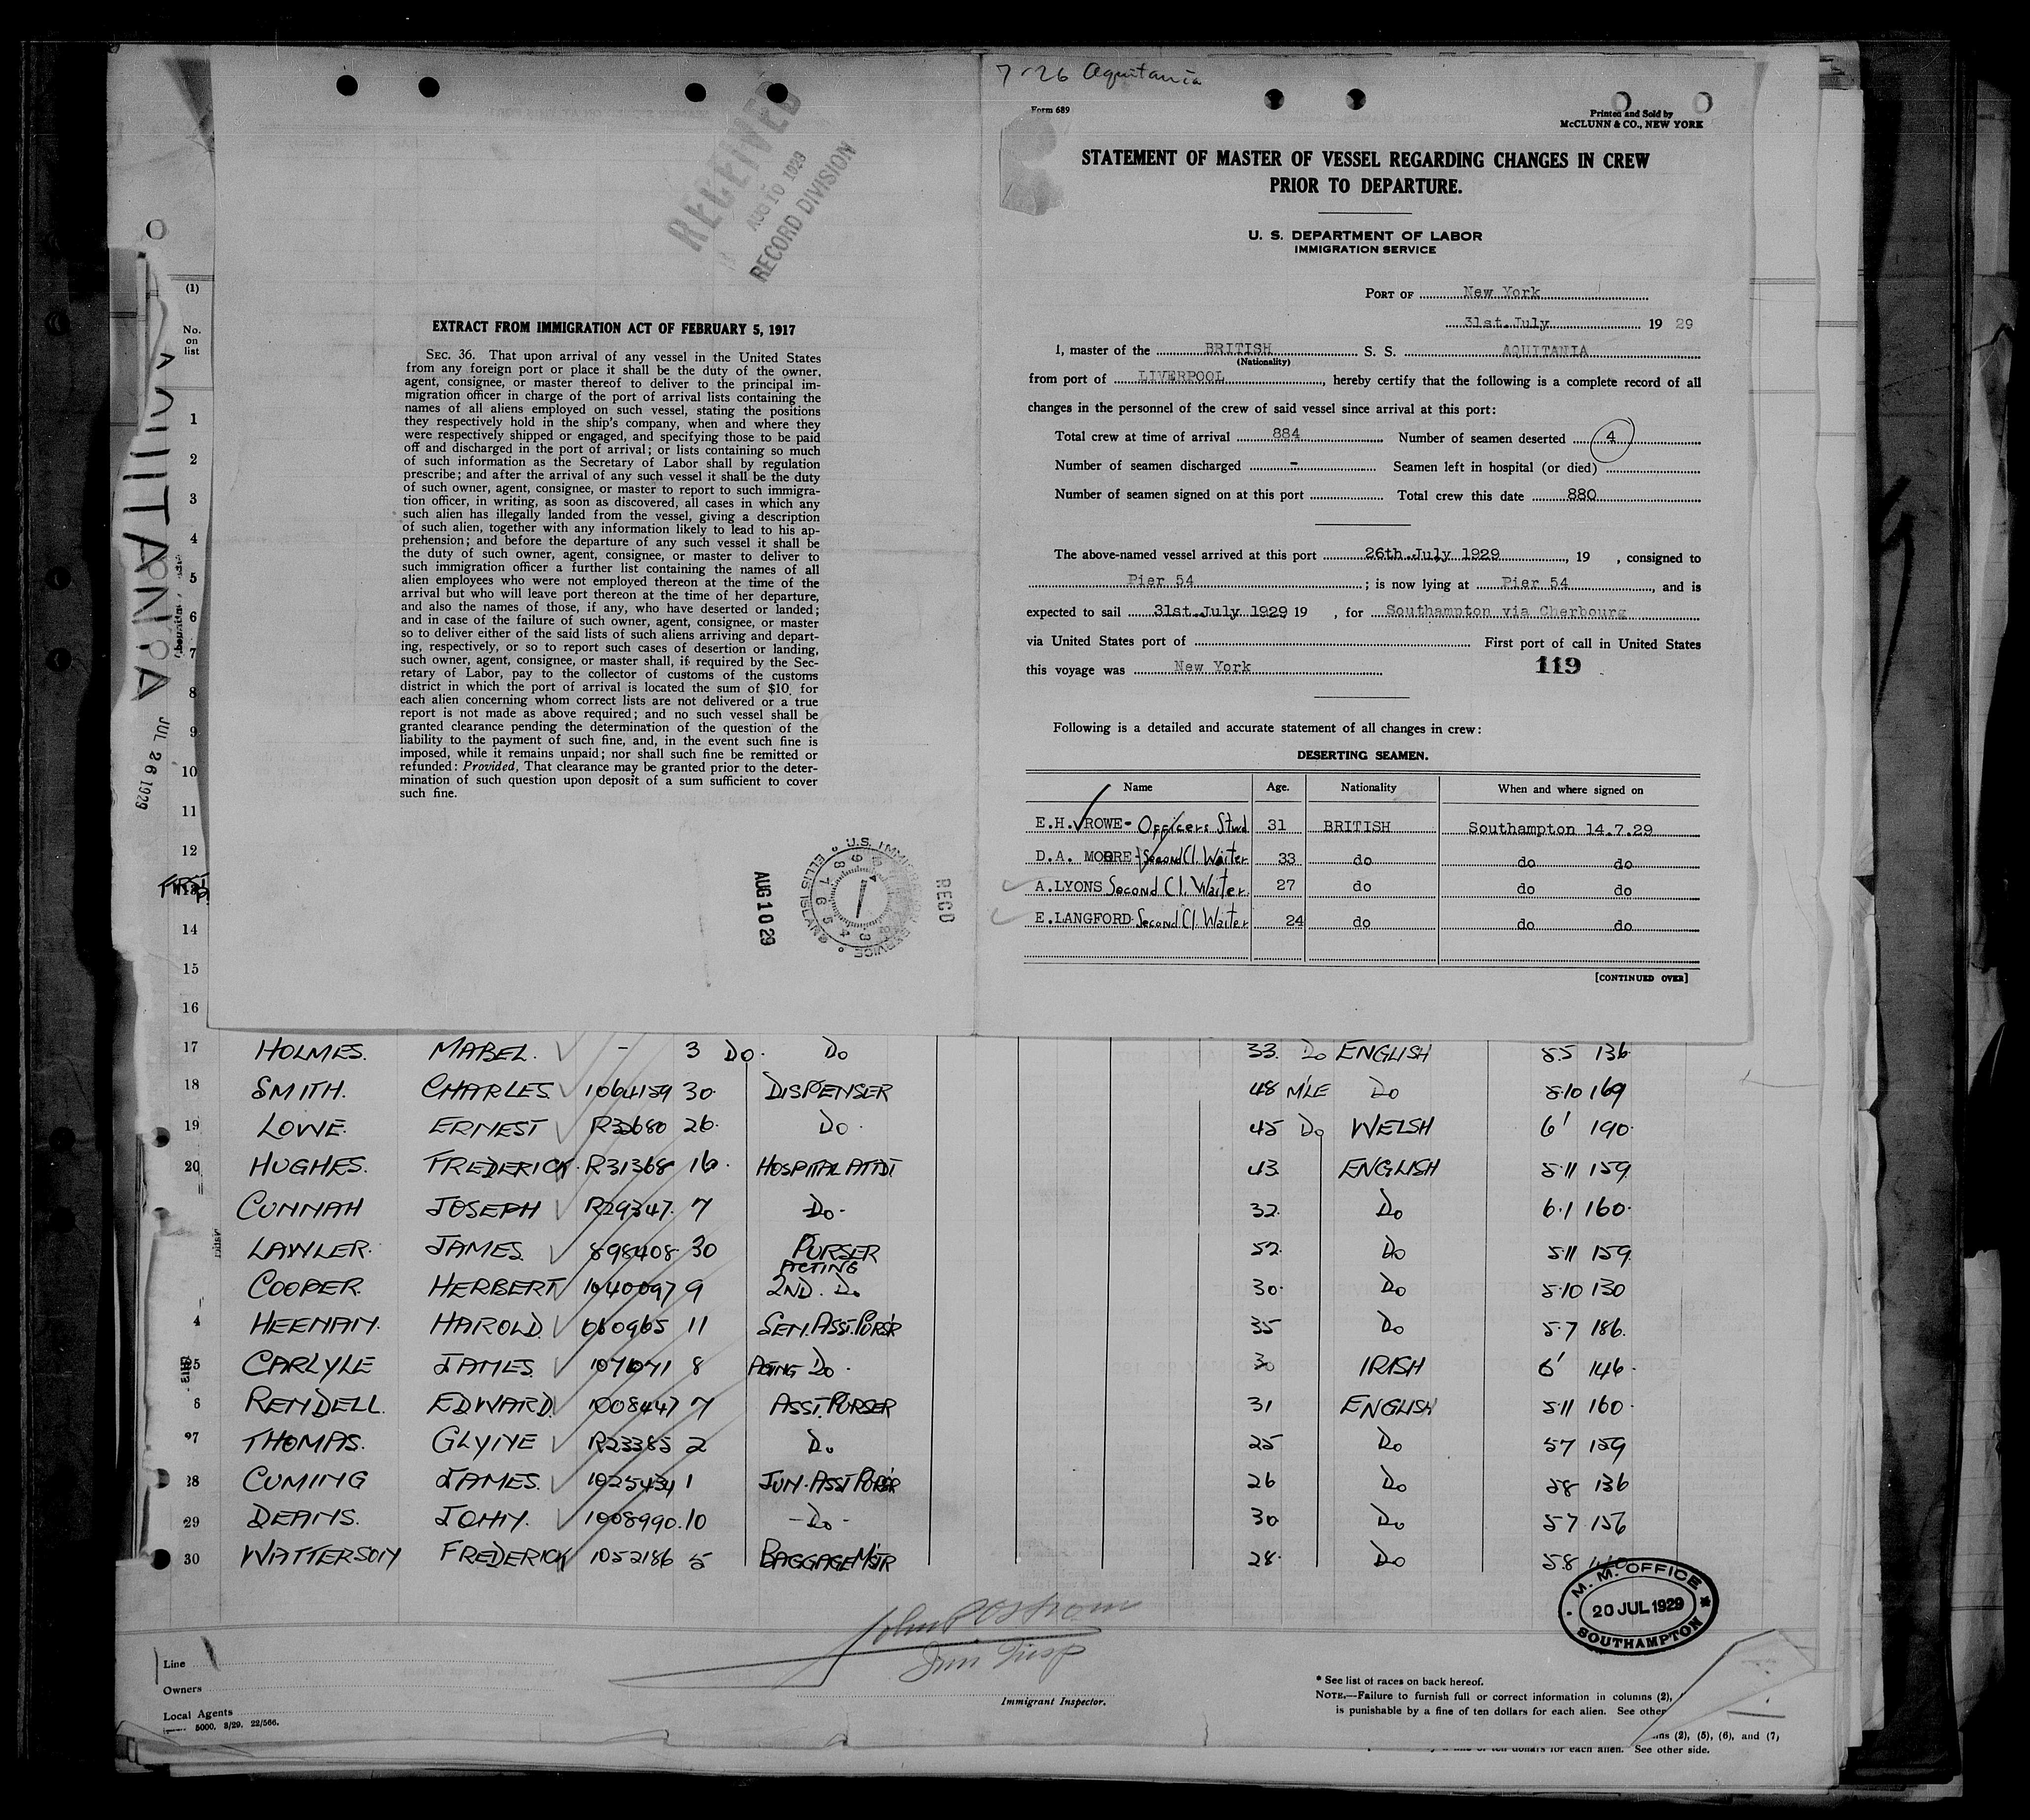 7-26 Aquitania
Form 689
Printed and Sold by
McCLUNN & CO., NEW YORK
STATEMENT OF MASTER OF VESSEL REGARDING CHANGES IN CREW
PRIOR TO DEPARTURE.
U. S. DEPARTMENT OF LABOR
IMMIGRATION SERVICE
PORT OF New York
31st. July 19 29
I, master of the BRITISH S. S. AQUITANIA
(Nationality)
from port of LIVERPOOL, hereby certify that the following is a complete record of all
changes in the personnel of the crew of said vessel since arrival at this port:
Total crew at time of arrival 884 Number of seamen deserted 4
Number of seamen discharged - Seamen left in hospital (or died)
Number of seamen signed on at this port Total crew this date 880
The above-named vessel arrived at this port 26th. July 1929, 19 , consigned to
Pier 54 ; is now lying at Pier 54, and is
expected to sail 31st. July 1929 19 , for Southampton via Cherbourg
via United States port of First port of call in United States
this voyage was New York 119
Following is a detailed and accurate statement of all changes in crew:
DESERTING SEAMEN.
Name Age. Nationality When and where signed on
E.H. ROWE - Officers Stwd 31 BRITISH Southampton 14.7.29
D.A. MOORE - Second Cl. Waiter 33 do do do
A. LYONS Second Cl. Waiter. 27 do do do
E. LANGFORD Second Cl. Waiter 24 do do do
[CONTINUED OVER]
RECEIVED
AUG 10 1929
RECORD DIVISION
EXTRACT FROM IMMIGRATION ACT OF FEBRUARY 5, 1917
SEC. 36. That upon arrival of any vessel in the United States
from any foreign port or place it shall be the duty of the owner,
agent, consignee, or master thereof to deliver to the principal im-
migration officer in charge of the port of arrival lists containing the
names of all aliens employed on such vessel, stating the positions
they respectively hold in the ship's company, when and where they
were respectively shipped or engaged, and specifying those to be paid
off and discharged in the port of arrival; or lists containing so much
of such information as the Secretary of Labor shall by regulation
prescribe; and after the arrival of any such vessel it shall be the duty
of such owner, agent, consignee, or master to report to such immigra-
tion officer, in writing, as soon as discovered, all cases in which any
such alien has illegally landed from the vessel, giving a description
of such alien, together with any information likely to lead to his ap-
prehension; and before the departure of any such vessel it shall be
the duty of such owner, agent, consignee, or master to deliver to
such immigration officer a further list containing the names of all
alien employees who were not employed thereon at the time of the
arrival but who will leave port thereon at the time of her departure,
and also the names of those, if any, who have deserted or landed;
and in case of the failure of such owner, agent, consignee, or master
so to deliver either of the said lists of such aliens arriving and depart-
ing, respectively, or so to report such cases of desertion or landing,
such owner, agent, consignee, or master shall, if required by the Sec-
retary of Labor, pay to the collector of customs of the customs
district in which the port of arrival is located the sum of $10 for
each alien concerning whom correct lists are not delivered or a true
report is not made as above required; and no such vessel shall be
granted clearance pending the determination of the question of the
liability to the payment of such fine, and, in the event such fine is
imposed, while it remains unpaid; nor shall such fine be remitted or
refunded: Provided, That clearance may be granted prior to the deter-
mination of such question upon deposit of a sum sufficient to cover
such fine.
AUG 10 29
RECD
AQUITANIA
JUL 26 1929
(1)
No.
on
list
1
2
3
4
5
6
7
8
9
10
11
12
14
15
16
17 HOLMES. MABEL. - 3 Do. Do 33. Do ENGLISH 5.5 136
18 SMITH. CHARLES 1064159 30 DISPENSER 48 MLE Do 5.10 169
19 LOWE. ERNEST R32680 26. Do. 45 Do WELSH 6' 190.
20 HUGHES. FREDERICK. R31368 16. HOSPITAL ATTDT 43 ENGLISH 5.11 159
CUNNAH JOSEPH R29347. 7 Do. 32. Do 6.1 160.
LAWLER. JAMES 898408 30 PURSER 52. Do 5.11 159
COOPER. HERBERT 1040097 9 ACTING 2ND. Do 30. Do 5.10 130
4 HEENAN. HAROLD. 060965 11 SEN. ASST. PURS'R 35 Do 5.7 186.
25 CARLYLE JAMES. 107071 8 ACTING Do. 30 IRISH 6' 146.
6 RENDELL. EDWARD. 1008447 7 ASST. PURSER 31 ENGLISH 5.11 160.
27 THOMAS. GLYNE R23385 2 Do 25 Do 5 7 159
28 CUMING JAMES. 1025434 1 JUN. ASST PURS'R 26 Do 5 8 136
29 DEANS. JOHN. 1008990. 10 - Do - 30 Do 5 7 156
30 WATTERSON FREDERICK 1052186 5 BAGGAGE M'STR 28. Do 5.8
M. M. OFFICE
20 JUL 1929
SOUTHAMPTON
Line
Owners
Local Agents
5000. 3/29. 22/566.
Immigrant Inspector.
* See list of races on back hereof.
NOTE.—Failure to furnish full or correct information in columns (2),
is punishable by a fine of ten dollars for each alien. See other
(2), (5), (6), and (7)
dollars for each alien. See other side.